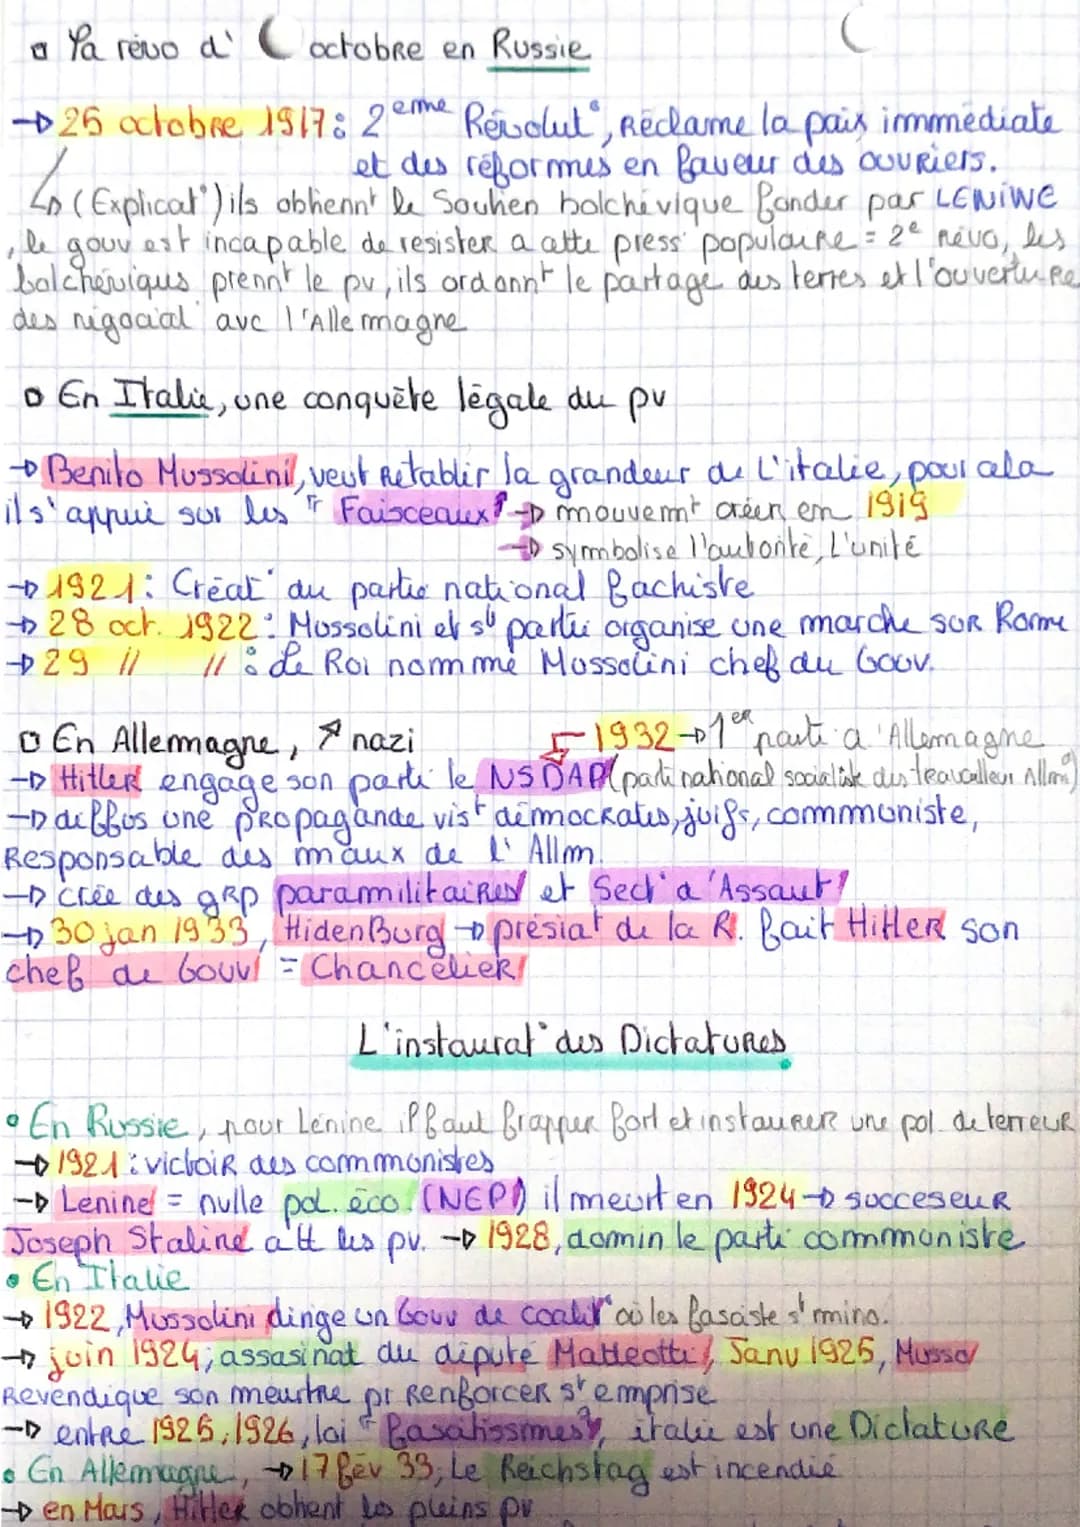 □ La révo d' octobre en Russie
→ 25 octobre 1917 : 2eme Révolut°, Réclame la paix immmédiate
et des réformes en faveur des ouvriers.
↳ (Explicat°) ils obtiennt le Soutien bolchévique fonder par LENiNE
, le gouv est incapable de resister a cette press° populaire = 2e révo, les
bolchéviques prennt le pv, ils ordonnt le partage des terres et l'ouverture
des négociat° avc l'Allemagne
□ En Italie, une conquète légale du pv
→ Benito Mussolini, veut Rétablir la grandeur de L'italie, pour cela
il s'appuie sur les " Faisceaux" → mouvemt créer en 1919
→ symbolise l'autorité, L'unité
→ 1921 : Créat° du partie national fachiste
→ 28 oct. 1922 : Mussolini et st partie organise une marche sur Rome
→ 29 // // : Le Roi nommme Mussolini chef du Gouv.
□ En Allemagne, ↗ nazi
1932 → 1er parti d'Allemagne
→ Hitler engage son parti le NSDAP (parti national socialiste des travailleur Allm)
→ diffus une propagande vist démocrates, juifs, commmuniste,
Responsable des maux de l'Allm.
→ crée des grp paramilitaires et Sect° d'Assaut
→ 30 jan 1933, HidenBurg → présidt de la R. fait Hitler son
chef de Gouv = Chancelier
L'instaurat° des Dictatures
• En Russie, pour Lénine il faut frapper fort et instaurer une pol. de terreur
→ 1921 : victoir des commmunistes
→ Lenine = nulle pol. éco. (NEP) il meurt en 1924 → succeseur
Joseph Staline a tt les pv. → 1928, domin le parti commmuniste
• En Italie
→ 1922, Mussolini dirige un Gouv de coalit° où les fasciste st mino.
→ juin 1924, assasinat du député Matteotti, Janv 1925, Musso
Revendique son meurtre pr Renforcer st emprise
→ entre 1925, 1926, loi " fascitissmes", italie est une Dictature
• En Allemagne, → 17 fév 33, Le Reichstag est incendié
→ en Mars, Hitler obtient les pleins pv